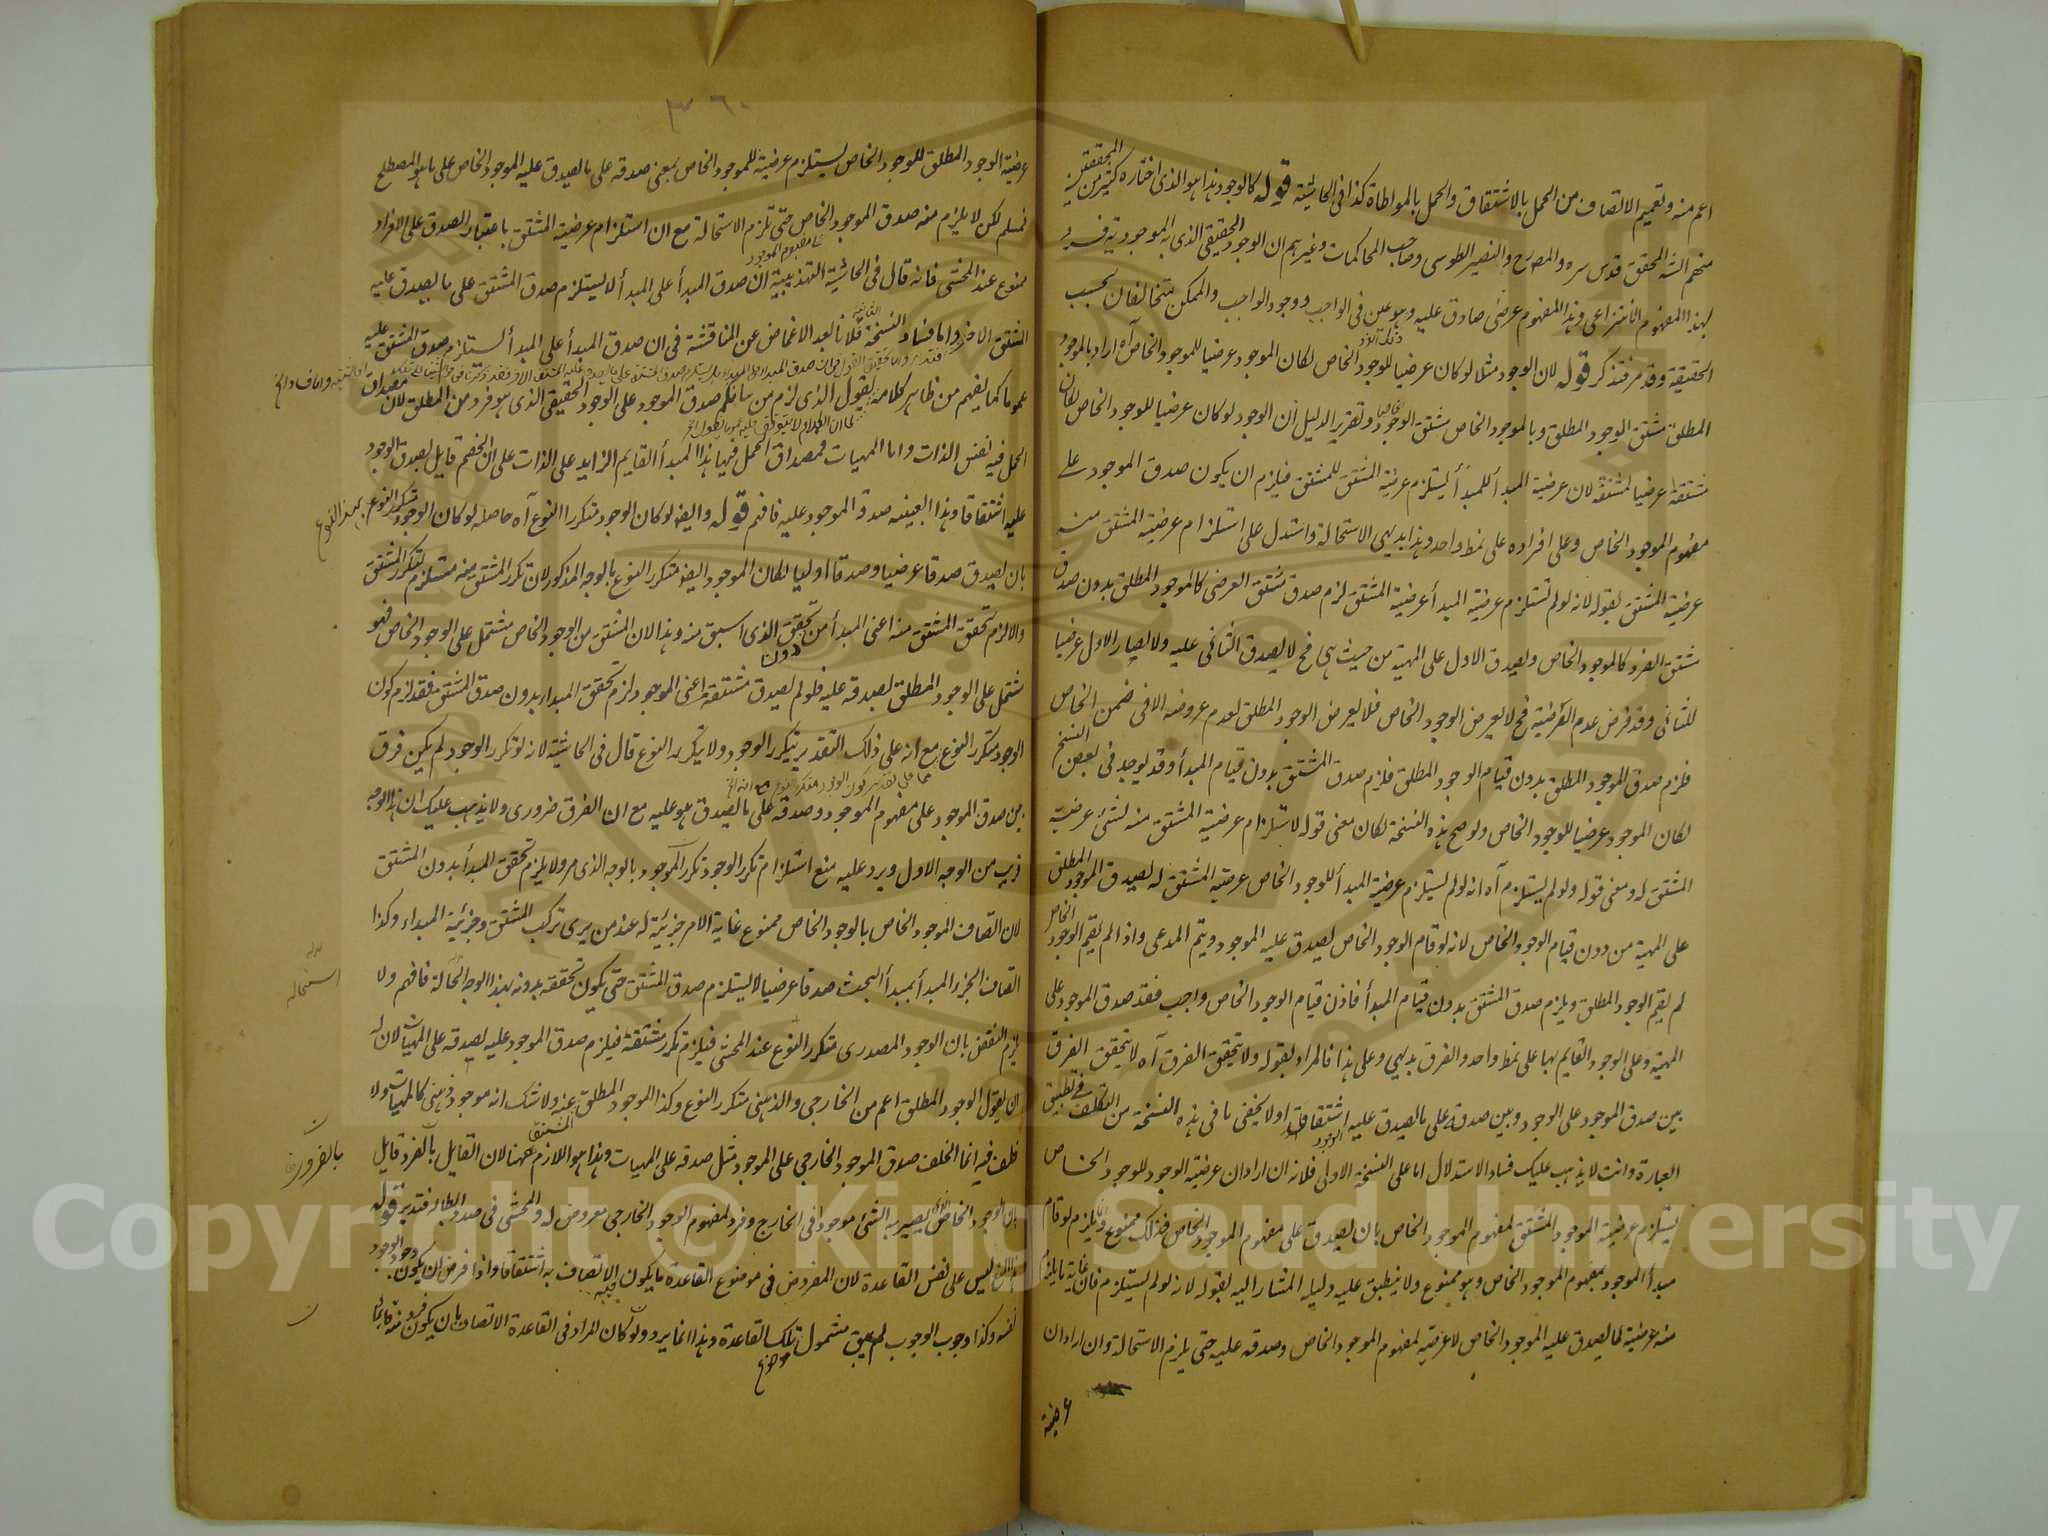 اعم منه وتعميم الاتصاف من الحمل بالاشتقاق والحمل بالمواطاة كذا فى الحاشية قوله كالوجود هذا هو الذى اختاره كثير من المحققين
منهم الشه المحقق قدس سره والمصرح والنصير الطوسى وصاحب المحاكمات وغيرهم ان الوجود الحقيقى الذى به الموجودية فرد
لهذا المفهوم الانتزاعى وهذا المفهوم عرضى صادق عليه وهو عين فى الواجب ووجود الواجب والممكن متخالفان بحسب
الحقيقة وقد مر فتذكر قوله لان الوجود مثلا لو كان عرضيا للوجود الخاص لكان الموجود عرضيا للموجود الخاص آه اراد بالموجود
المطلق مشتق الوجود المطلق وبالموجود الخاص مشتق الوجود الخاص وتقرير الدليل ان الوجود لو كان عرضيا للوجود الخاص لكان
مشتقه عرضيا لمشتقه لان عرضية المبدأ للمبدأ يستلزم عرضية المشتق للمشتق فيلزم ان يكون صدق الموجود على
مفهوم الموجود الخاص وعلى افراده على نمط واحد وهذا بديهى الاستحالة واستدل على استلزام عرضية المشتق منه
عرضية المشتق بقوله لانه لو لم تستلزم عرضية المبدأ عرضية المشتق لزم صدق مشتق العرضى كالموجود المطلق بدون صدق
مشتق الفرد كالموجود الخاص وليصدق الاول على المهية من حيث هى فح لا يصدق الثانى عليه ولا لصار الاول عرضيا
للثانى وقد فرض عدم العرضية فح لا يعرض الوجود الخاص فلا يعرض الوجود المطلق لعدم عروضه الا فى ضمن الخاص
فلزم صدق الموجود المطلق بدون قيام الوجود المطلق فلزم صدق المشتق بدون قيام المبدأ وقد يوجد فى بعض النسخ
لكان الموجود عرضيا للوجود الخاص ولو صح هذه النسخة لكان معنى قوله لاستلزام عرضية المشتق منه لشئ عرضية
المشتق له ومعنى قوله ولو لم يستلزم آه انه لو لم يستلزم عرضية المبدأ للوجود الخاص عرضية المشتق له ليصدق الموجود المطلق
على المهية من دون قيام الوجود الخاص لانه لو قام الوجود الخاص ليصدق عليه الموجود ويتم المدعى واذا لم يقم الوجود الخاص
لم يقم الوجود المطلق ويلزم صدق المشتق بدون قيام المبدأ فاذن قيام الوجود الخاص واجب فقد صدق الموجود على
المهية وعلى الوجود القايم بها على نمط واحد والفرق بديهى وعلى هذا فالمراد بقوله ولا يتحقق الفرق آه لا يتحقق الفرق
بين صدق الموجود على الوجود وبين صدقه على ما يصدق عليه الوجود اشتقاقا ولا يخفى ما فى هذه النسخة من التكلف فى تطبيق
العبارة وانت لا يذهب عليك فساد الاستدلال اما على النسخة الاولى فلانه ان اراد ان عرضية الوجود للوجود الخاص
يستلزم عرضية الموجود المشتق لمفهوم الموجود الخاص بان يصدق على مفهوم الموجود الخاص فذلك ممنوع وانما يلزم لو قام
مبدأ الموجود بمفهوم الموجود الخاص وهو ممنوع ولا ينطبق عليه دليله المشار اليه بقوله لانه لو لم يستلزم فان غاية ما يلزم
منه عرضية لما يصدق عليه الموجود الخاص لا عرضية لمفهوم الموجود الخاص وصدقه عليه حتى يلزم الاستحالة وان اراد ان
عرضية
٣٦٠
عرضية الوجود المطلق للوجود الخاص يستلزم عرضية للموجود الخاص بمعنى صدقه على ما يصدق عليه الموجود الخاص على ما هو المصطلح
فمسلم لكن لا يلزم منه صدق الموجود الخاص حتى تلزم الاستحالة مع ان استلزام عرضية المشتق باعتبار الصدق على الافراد
ممنوع عند المحشى فانه قال فى الحاشية التهذيبية ان صدق المبدأ على المبدأ لا يستلزم صدق المشتق على ما يصدق عليه
المشتق الاخر واما فساد النسخة الثانية فلانا بعد الاغماض عن المناقشة فى ان صدق المبدأ على المبدأ يستلزم صدق المشتق عليه
عموما كما يفهم من ظاهر كلامه نقول الذى لزم من بيانكم صدق الموجود على الوجود الحقيقى الذى هو فرد من المطلق لان مصداق
الحمل فيه نفس الذات واما المهيات فمصداق الحمل فيها هذا المبدأ القايم الزايد على الذات على ان الخصم قايل بصدق الوجود
عليه اشتقاقا وهذا بعينه صدق الموجود عليه فافهم قوله وايضا لو كان الوجود متكرر النوع آه حاصله لو كان الوجود متكرر النوع بهذا النوع
بان يصدق صدقا عرضيا وصدقا اوليا لكان الموجود ايضا متكرر النوع بالوجه المذكور لان تكرر المشتق منه مستلزم لتكرر المشتق
والا لزم تحقق المشتق منه اعنى المبدأ من تحقق الذى اسبق منه وهذا لان المشتق من الوجود الخاص مشتمل على الوجود الخاص فهو
مشتمل على الوجود المطلق لصدقه عليه فلو لم يصدق مشتقه اعنى الموجود لزم تحقق المبداء بدون صدق المشتق فقد لزم كون
الوجود متكرر النوع مع انه على ذلك التقدير يتكرر الوجود ولا يتكرر النوع قال فى الحاشية لانه لو تكرر الوجود لم يكن فرق
بين صدق الموجود على مفهوم الموجود وصدقه على ما يصدق هو عليه مع ان الفرق ضرورى ولا يذهب عليك ان هذا الوجه
قريب من الوجه الاول ويرد عليه منع استلزام تكرر الوجود تكرر الموجود بالوجه الذى مر ولا يلزم تحقق المبدأ بدون المشتق
لان اتصاف الموجود الخاص بالوجود الخاص ممنوع غاية الامر جزئية له عند من يرى تركب المشتق وجزئية المبداء وكذا
اتصاف الجزء المبدأ بمبدأ البحث صدقا عرضيا لا يستلزم صدق المشتق حتى يكون تحققه بدونه بهذا الوجه الحالة فافهم ولا
يلزم النقض بان الوجود المصدرى متكرر النوع عند المحشى فيلزم تكرر مشتقه فيلزم صدق الموجود عليه لصدقه على المهيات لان له
ان يقول الوجود المطلق اعم من الخارجى والذهنى متكرر النوع وكذا الموجود المطلق عنه ولا شك انه موجود ذهنى كالمهيات ولا
خلف فيه انما الخلف صدق الموجود الخارجى على الموجود مثل صدقه على المهيات وهذا هو اللازم ههنا لان القايل بالفرد قايل
بان الوجود الخاص الذى يصير به الشئ موجودا فى الخارج وفرد لمفهوم الوجود الخارجى معروض له والمحشى فى صدد ابطاله فتدبر قوله
ليس على نفس القاعدة لان المفروض فى موضوع القاعدة ما يكون الاتصاف به اشتقاقا واذا فرض ان يكون وجود الوجود
نفسه وكذا وجوب الوجوب لم يبق مشمول تلك القاعدة وهذا انما يرد لو كان المراد فى القاعدة الاتصاف بان يكون فرد منه قائما
استحاله
بالضرورة